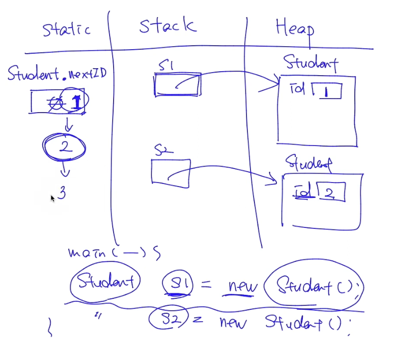 Static Stack Heap
Student.nextID
1
2
3
S1
S2
Student
id 1
Student
id 2
main(—) {
Student S1 = new Student();
" S2 = new Student();
}